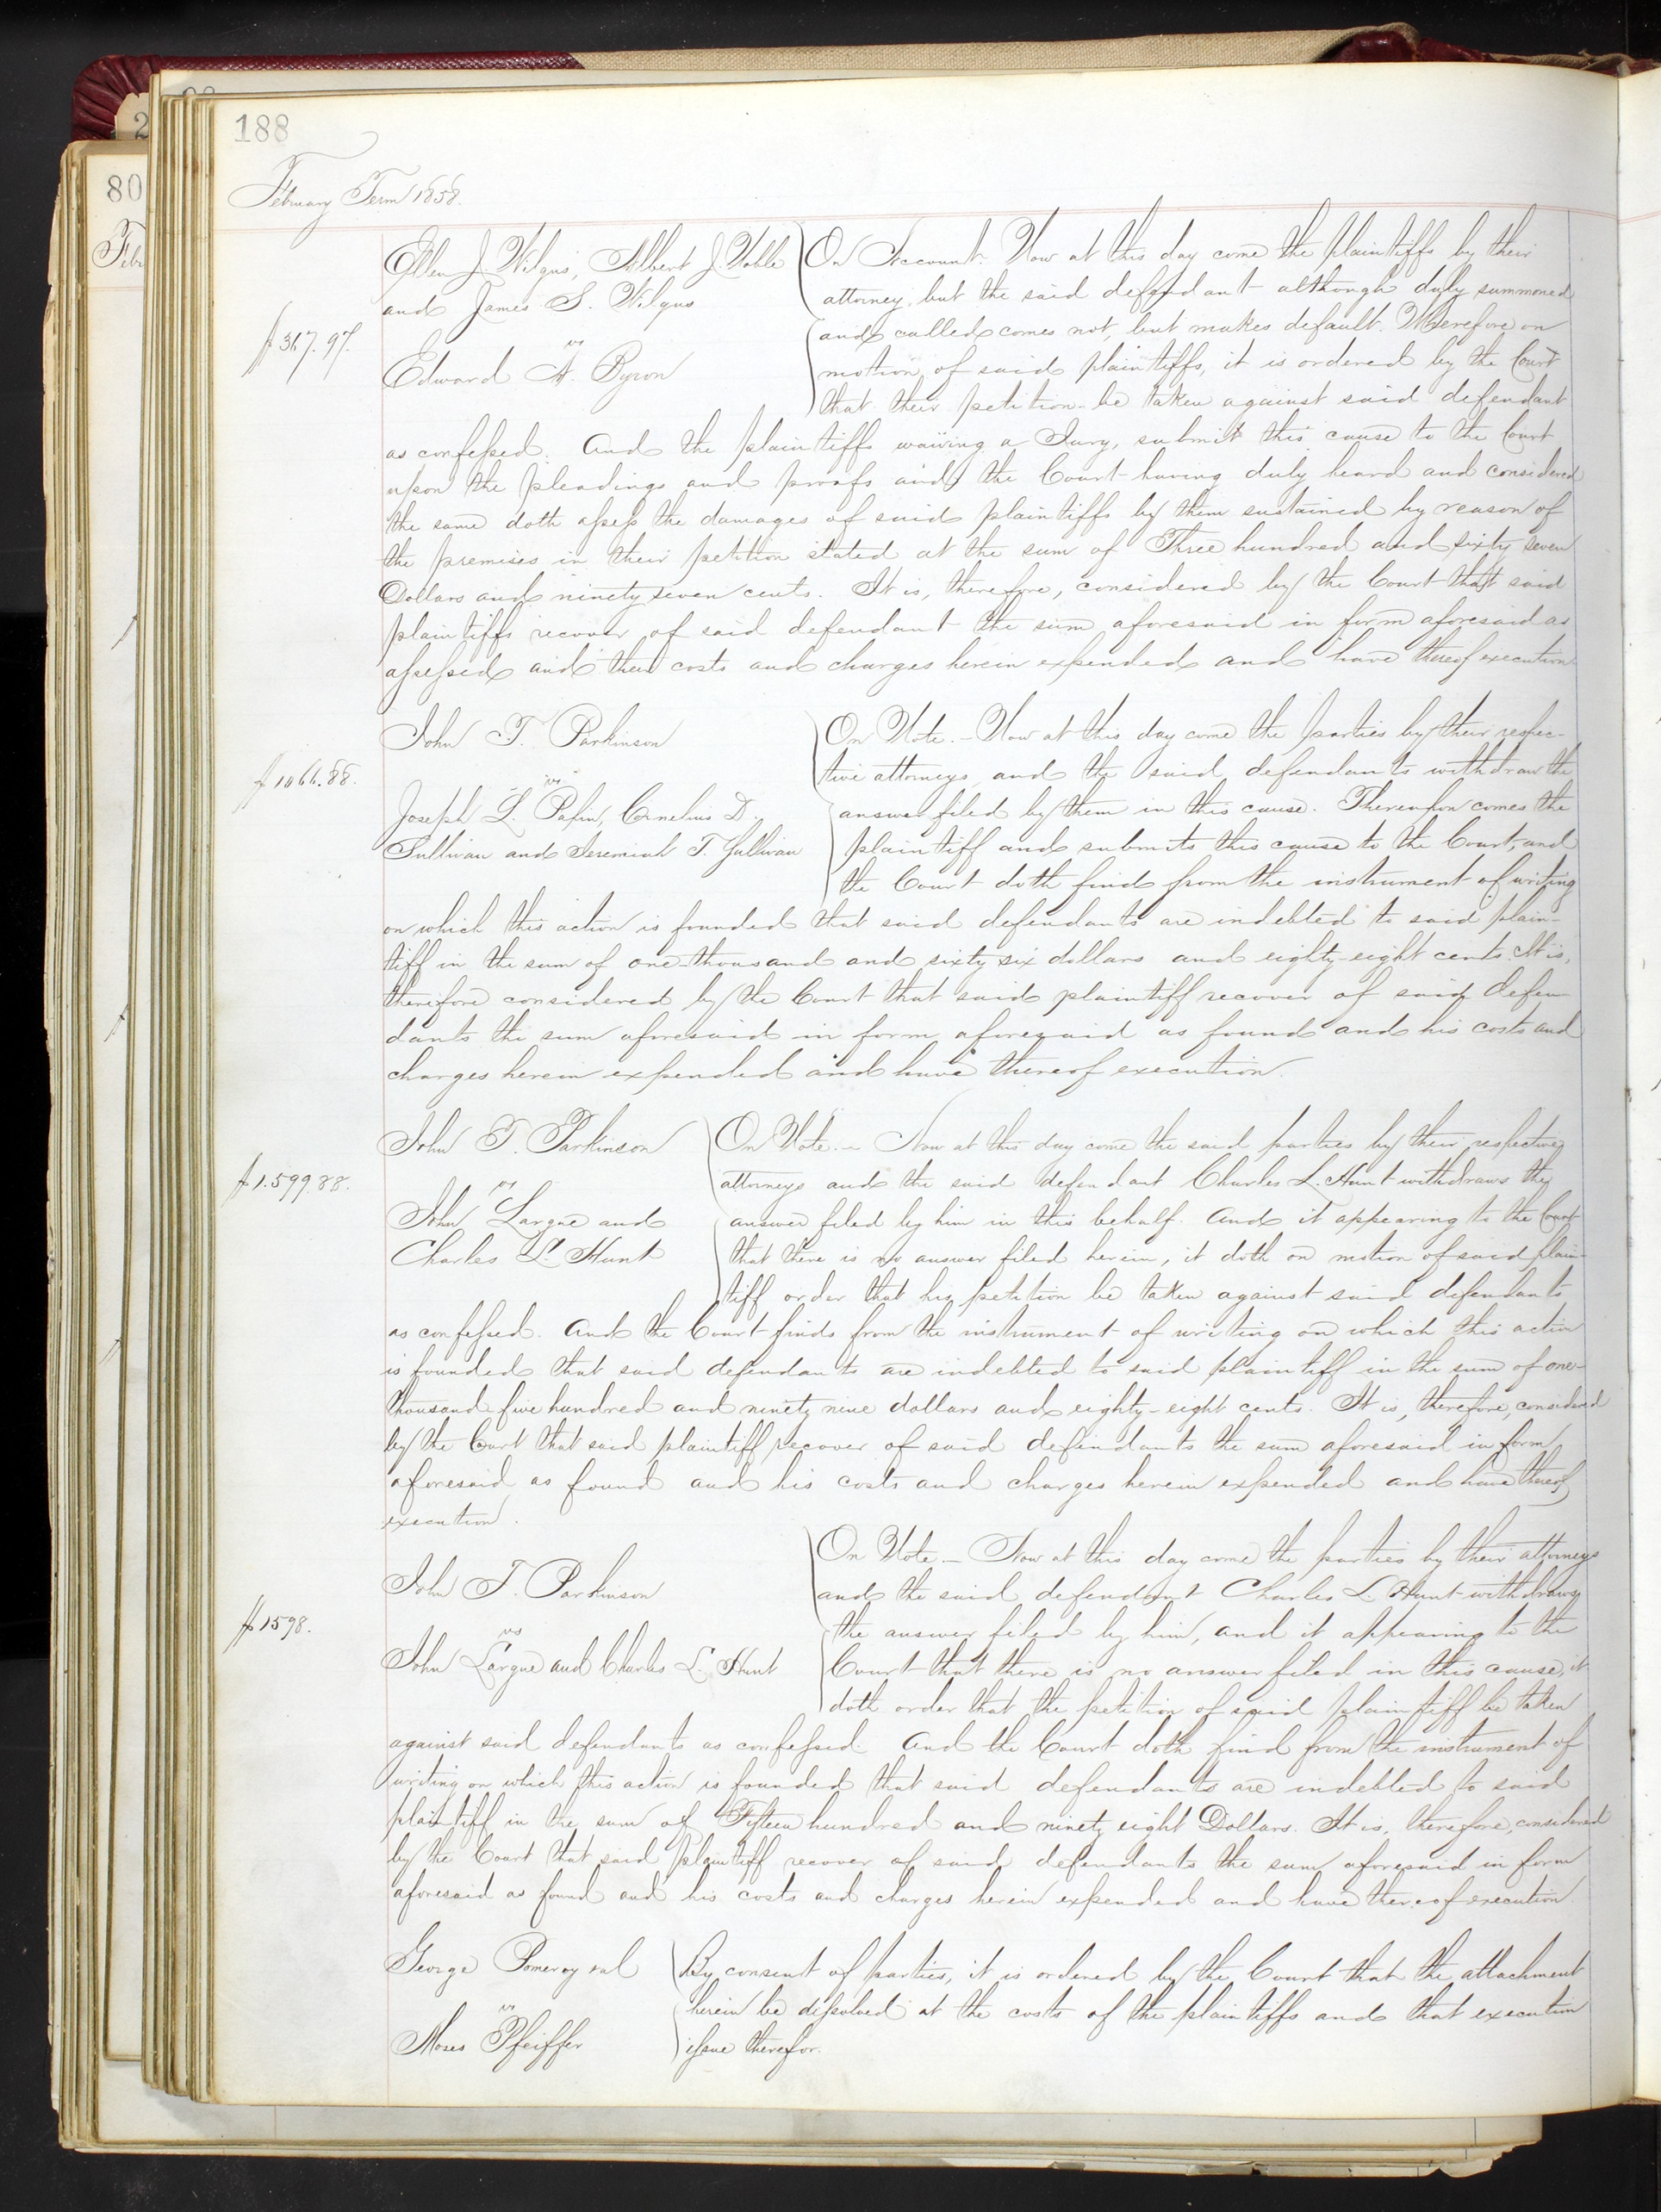 188
February Term 1858.
Ellen J. Wilgus, Albert J. Noble
and James S. Wilgus
$367.97.
vs
Edward A. Byron
On Account. Now at this day come the Plaintiffs by their
attorney, but the said defendant although duly summoned
and called comes not, but makes default. Wherefore on
motion of said plaintiffs, it is ordered by the Court
that their petition be taken against said defendant
as confessed. And the plaintiffs waiving a Jury, submit this cause to the Court
upon the pleadings and proofs and the Court having duly heard and considered
the same doth assess the damages of said plaintiffs by them sustained by reason of
the premises in their petition stated at the sum of Three hundred and sixty seven
Dollars and ninety seven cents. It is, therefore, considered by the Court that said
plaintiffs recover of said defendant the sum aforesaid in form aforesaid as
assessed and their costs and charges herein expended and have thereof execution
John T. Parkinson
$1066.88.
vs
Joseph L. Papin, Cornelius D.
Sullivan and Jeremiah T. Sullivan
On Note. - Now at this day come the parties by their respec-
tive attorneys and the said defendants withdraw the
answer filed by them in this cause. Thereupon comes the
plaintiff and submits this cause to the Court, and
the Court doth find from the instrument of writing
on which this action is founded that said defendants are indebted to said plain-
tiff in the sum of one thousand and sixty six dollars and eighty eight cents. It is,
therefore considered by the Court that said plaintiff recover of said defen-
dants the sum aforesaid in form aforesaid as found and his costs and
charges herein expended and have thereof execution.
John T. Parkinson
$1.599.88.
vs
John Largue and
Charles L. Hunt
On Note. - Now at this day come the said parties by their respective
attorneys and the said defendant Charles L. Hunt withdraws the
answer filed by him in this behalf. And it appearing to the Court
that there is no answer filed herein, it doth on motion of said plain-
tiff order that his petition be taken against said defendants
as confessed. And the Court finds from the instrument of writing on which this action
is founded that said defendants are indebted to said plaintiff in the sum of one
thousand five hundred and ninety nine dollars and eighty-eight cents. It is, therefore, considered
by the Court that said plaintiff recover of said defendants the sum aforesaid in form
aforesaid as found and his costs and charges herein expended and have thereof
execution.
John T. Parkinson
$1598.
vs
John Largue and Charles L. Hunt
On Note. - Now at this day come the parties by their attorneys
and the said defendant Charles L. Hunt withdraws
the answer filed by him, and it appearing to the
Court that there is no answer filed in this cause, it
doth order that the petition of said plaintiff be taken
against said defendants as confessed. And the Court doth find from the instrument of
writing on which this action is founded that said defendants are indebted to said
plaintiff in the sum of Fifteen hundred and ninety eight Dollars. It is, therefore, considered
by the Court that said plaintiff recover of said defendants the sum aforesaid in form
aforesaid as found and his costs and charges herein expended and have thereof execution
George Pomeroy et al
vs
Moses Pfeiffer
By consent of parties, it is ordered by the Court that the attachment
herein be dissolved at the costs of the plaintiffs and that execution
issue therefor.
80
Feb